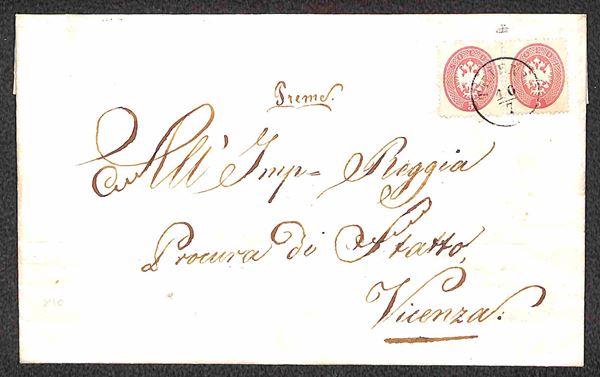 Preme.
All' Imp= Reggia
Procura di Statto,
Vicenza.
10
7
5